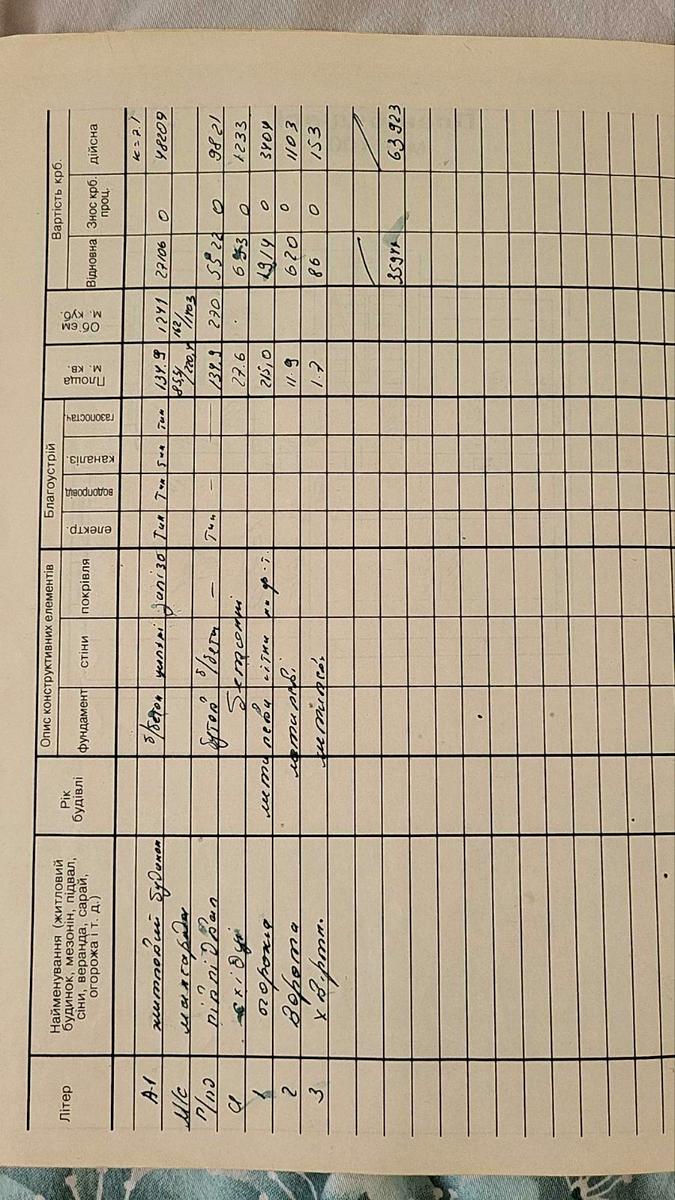 Літер Найменування (житловий будинок, мезонін, підвал, сіни, веранда, сарай, огорожа і т. д.) Рік будівлі Опис конструктивних елементів Благоустрій Площа м. кв. Об'єм м. куб. Вартість крб.
фундамент стіни покрівля електр. водопровід каналіз. газопостач. Відновна Знос крб. проц. дійсна
к=7.1
А-1 житловий будинок б/бетон залізо Тип Тип Тип 134.9 1241 27106 0 48209
М/С мансарда 85,5/220,4 162/1403
П/пд підвал бутов б/бетон — Тип — — 134,9 270 5522 0 9821
а сходи бетонні 27.6 0 1233
1 огорожа металева сітка 215,0 1914 0 3404
2 Ворота металеві 11.9 620 0 1103
3 хвіртк. 1.7 86 0 153
63923